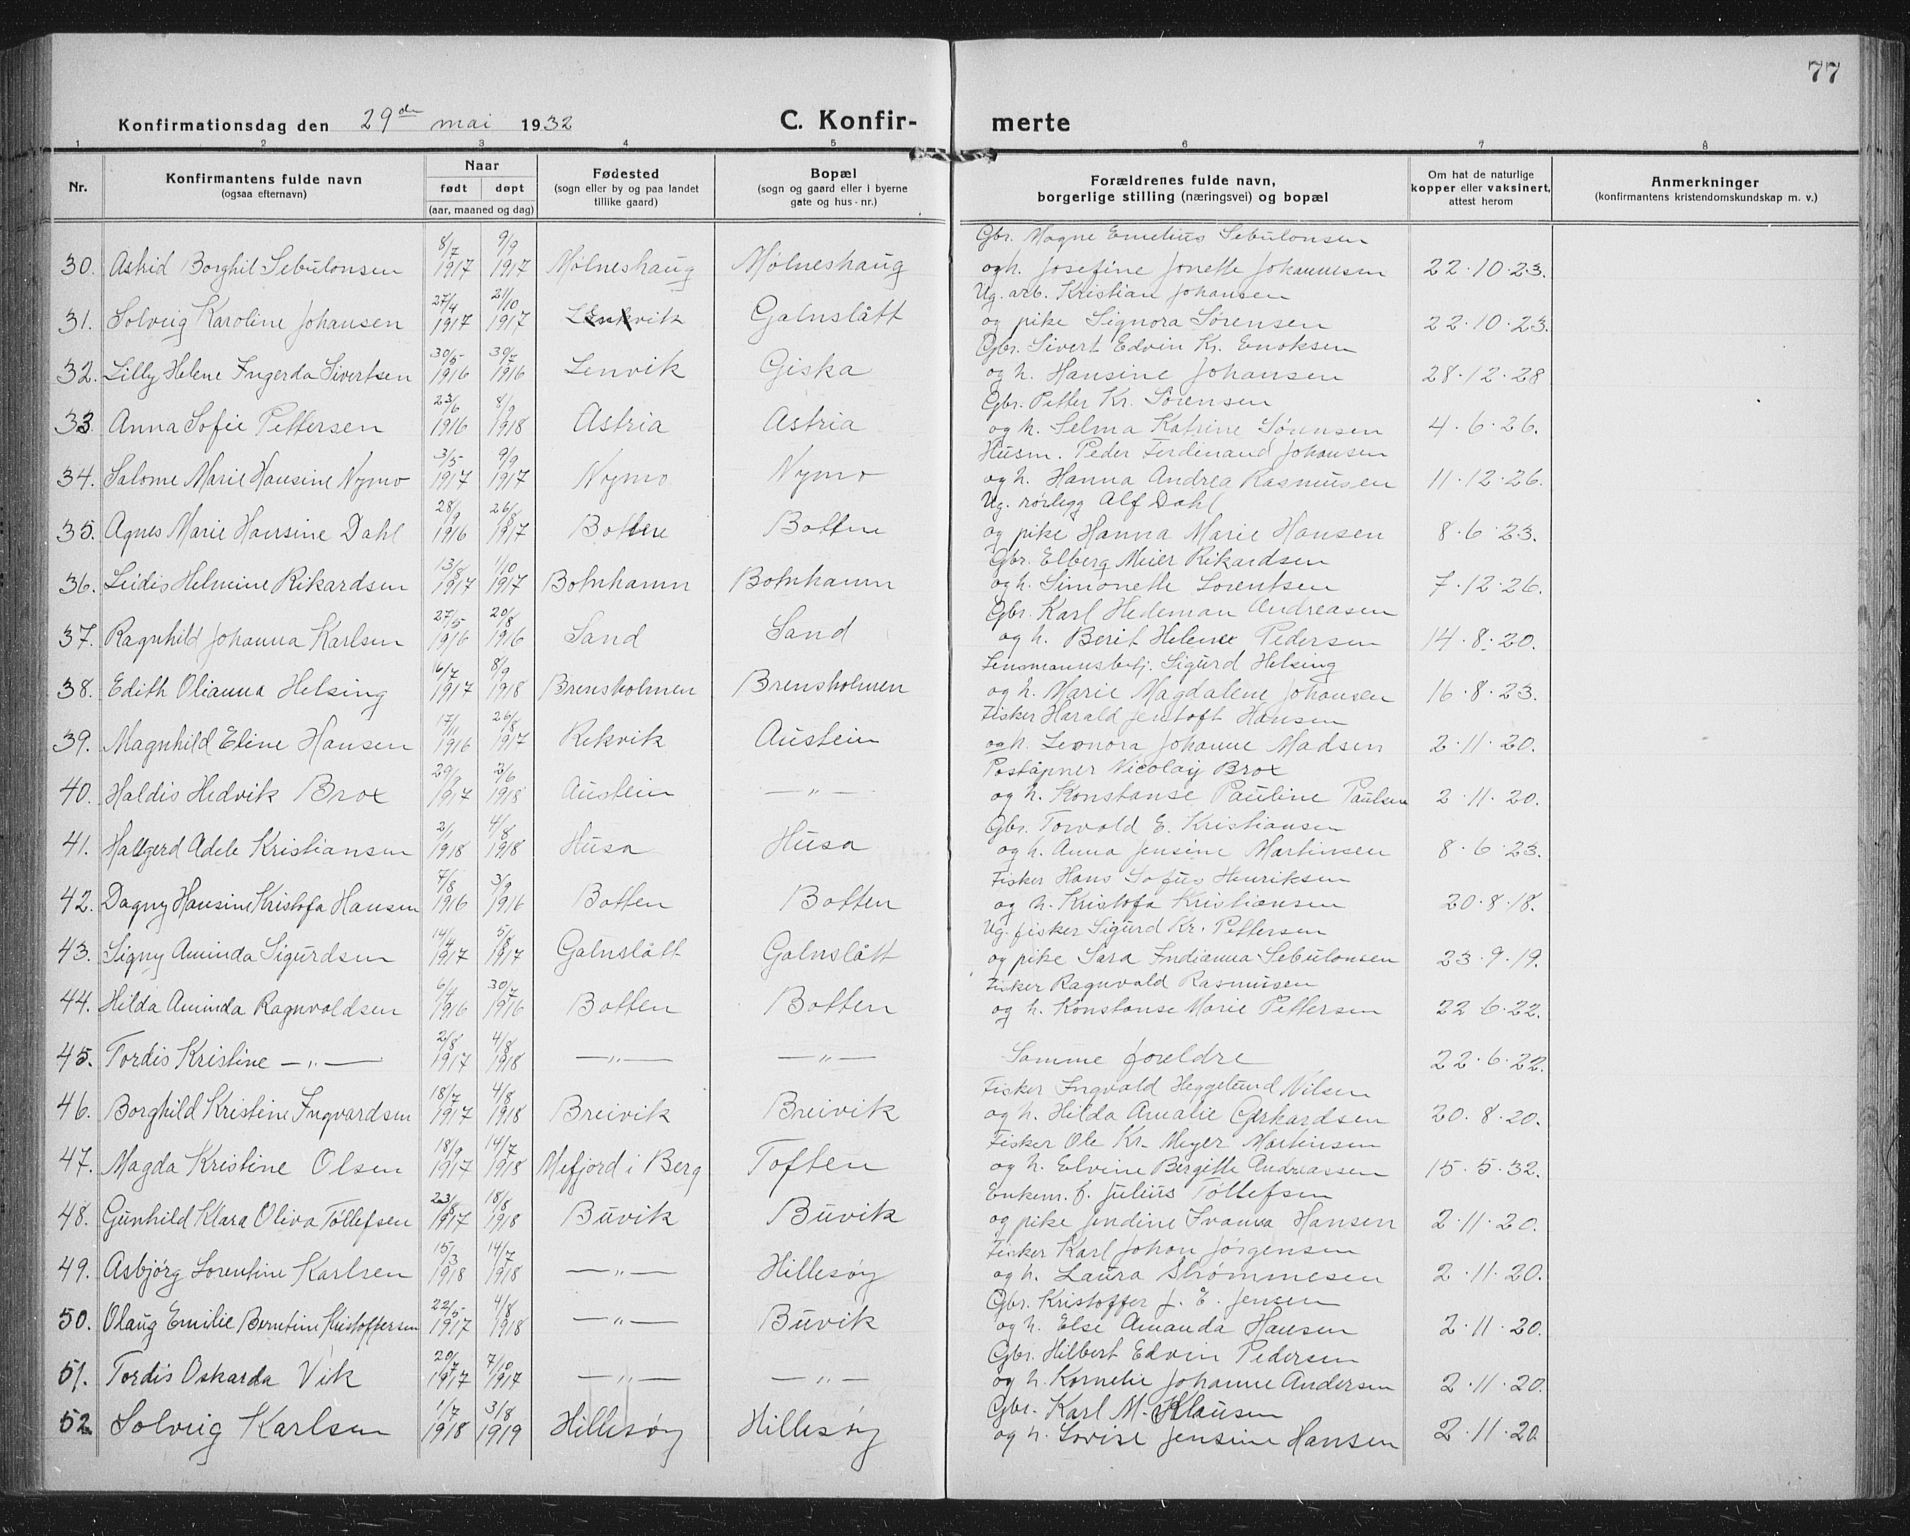 77
Konfirmationsdag den 29de mai 1932 C. Konfir- merte
1 2 3 4 5 6 7 8
Nr. Konfirmantens fulde navn (ogsaa efternavn) Naar født døpt (aar, maaned og dag) Fødested (sogn eller by og paa landet tillike gaard) Bopæl (sogn og gaard eller i byerne gate og hus-nr.) Forældrenes fulde navn, borgerlige stilling (næringsvei) og bopæl Om hat de naturlige kopper eller vaksinert, attest herom Anmerkninger (konfirmantens kristendomskundskap m. v.)
Gbr. Magne Emelius Sebulonsen
30. Astrid Borghil Sebulonsen 8/7 1917 9/9 1917 Mølneshaug Mølneshaug og h. Josefine Jonette Johannesen 22.10.23.
Ug. arb. Kristian Johansen
31. Solveig Karoline Johansen 27/4 1917 21/10 1917 Lenkvik Galnslått og pike Signora Sørensen 22.10.23.
Gbr. Sivert Edvin Kr. Enoksen
32. Lilly Helene Ingerda Sivertsen 30/5 1916 30/7 1916 Lenvik Giska og h. Hansine Johansen 28.12.28
Gbr. Petter Kr. Sørensen
33 Anna Sofie Pettersen 23/6 1916 8/9 1918 Astria Astria og h. Selma Katrine Sørensen 4.6.26.
Husm. Peder Ferdenand Johansen
34. Salome Marie Hansine Nymo 3/5 1917 9/9 1917 Nymo Nymo og h. Hanna Andrea Rasmusen 11.12.26.
Ug. rørlegg Alf Dahl
35. Agnes Marie Hansine Dahl 28/9 1916 26/8 1917 Bottne Bottne og pike Hanna Marie Hansen 8.6.23.
Gbr. Elberg Meier Rikardsen
36. Leidis Helmine Rikardsen 13/8 1917 1/10 1917 Botnhamn Botnhamn og h. Simonette Lorentsen 7.12.26.
Gbr. Karl Hedeman Andreasen
37. Ragnhild Johanna Karlsen 27/5 1916 20/8 1916 Sand Sand og h. Berit Helene Pedersen 14.8.20.
Lensmannsbetj. Sigurd Helsing
38. Edith Olianna Helsing 16/7 1917 8/9 1918 Brensholmen Brensholmen og h. Marie Magdalene Johansen 16.8.23.
Fisker Harald Jentoft Hansen
39. Magnhild Eline Hansen 17/11 1916 26/8 1917 Rekvik Austein og h. Leonora Johanne Madsen 2.11.20.
Poståpner Nicolay Brox
40. Haldis Hedvik Brox 29/9 1917 2/6 1918 Austein —„— og h. Konstanse Pauline Paulsen 2.11.20.
Gbr. Torvald E. Kristiansen
41. Hallgerd Adele Kristiansen 2/1 1918 4/8 1918 Husa Husa og h. Anna Jensine Martinsen 8.6.23.
Fisker Hans Sofus Henriksen
42. Dagny Hansine Kristofa Hansen 7/8 1916 3/9 1916 Botten Botten og h. Kristofa Kristiansen 20.8.18.
Ug. fisker Sigurd Kr. Pettersen
43. Signy Aminda Sigurdsen 14/4 1917 5/8 1917 Galnslått Galnslått og pike Sara Indianna Sebulonsen 23.9.19.
Fisker Ragnvald Rasmusen
44. Hilda Aminda Ragnvaldsen 6/4 1916 30/7 1916 Botten Botten og h. Konstanse Marie Pettersen 22.6.22.
45. Tordis Kristine —„— 21/8 1917 4/8 1918 —„— —„— Samme foreldre 22.6.22.
Fisker Ingvald Heggelund Nilsen
46. Borghild Kristine Ingvardsen 18/7 1917 4/8 1918 Breivik Breivik og h. Hilda Amalie Gerhardsen 20.8.20.
Fisker Ole Kr. Meyer Martinsen
47. Magda Kristine Olsen 18/9 1917 14/7 1918 Mefjord i Berg Toften og h. Elvine Birgitte Andreassen 15.5.32.
Enkem. f. Julius Tollefsen
48. Gunhild Klara Oliva Tøllefsen 23/8 1917 18/8 1918 Buvik Buvik og pike Jendine Ivanna Hansen 2.11.20.
Fisker Karl Johan Jørgensen
49. Asbjørg Lorentine Karlsen 15/3 1918 14/7 1918 —„— Hillesøy og h. Laura Strømmesen 2.11.20.
Gbr. Kristoffer J. E. Jensen
50. Olaug Emilie Berntine Kristoffersen 22/5 1917 4/8 1918 —„— Buvik og h. Else Amanda Hansen 2.11.20.
Gbr. Hilbert Edvin Pedersen
51. Tordis Oskarda Vik 20/7 1917 7/10 1917 —„— —„— og h. Kornelie Johanne Andersen 2.11.20.
Gbr. Karl M. Klausen
52. Solveig Karlsen 1/7 1918 3/8 1919 Hillesøy Hillesøy og h. Lovise Jensine Hansen 2.11.20.